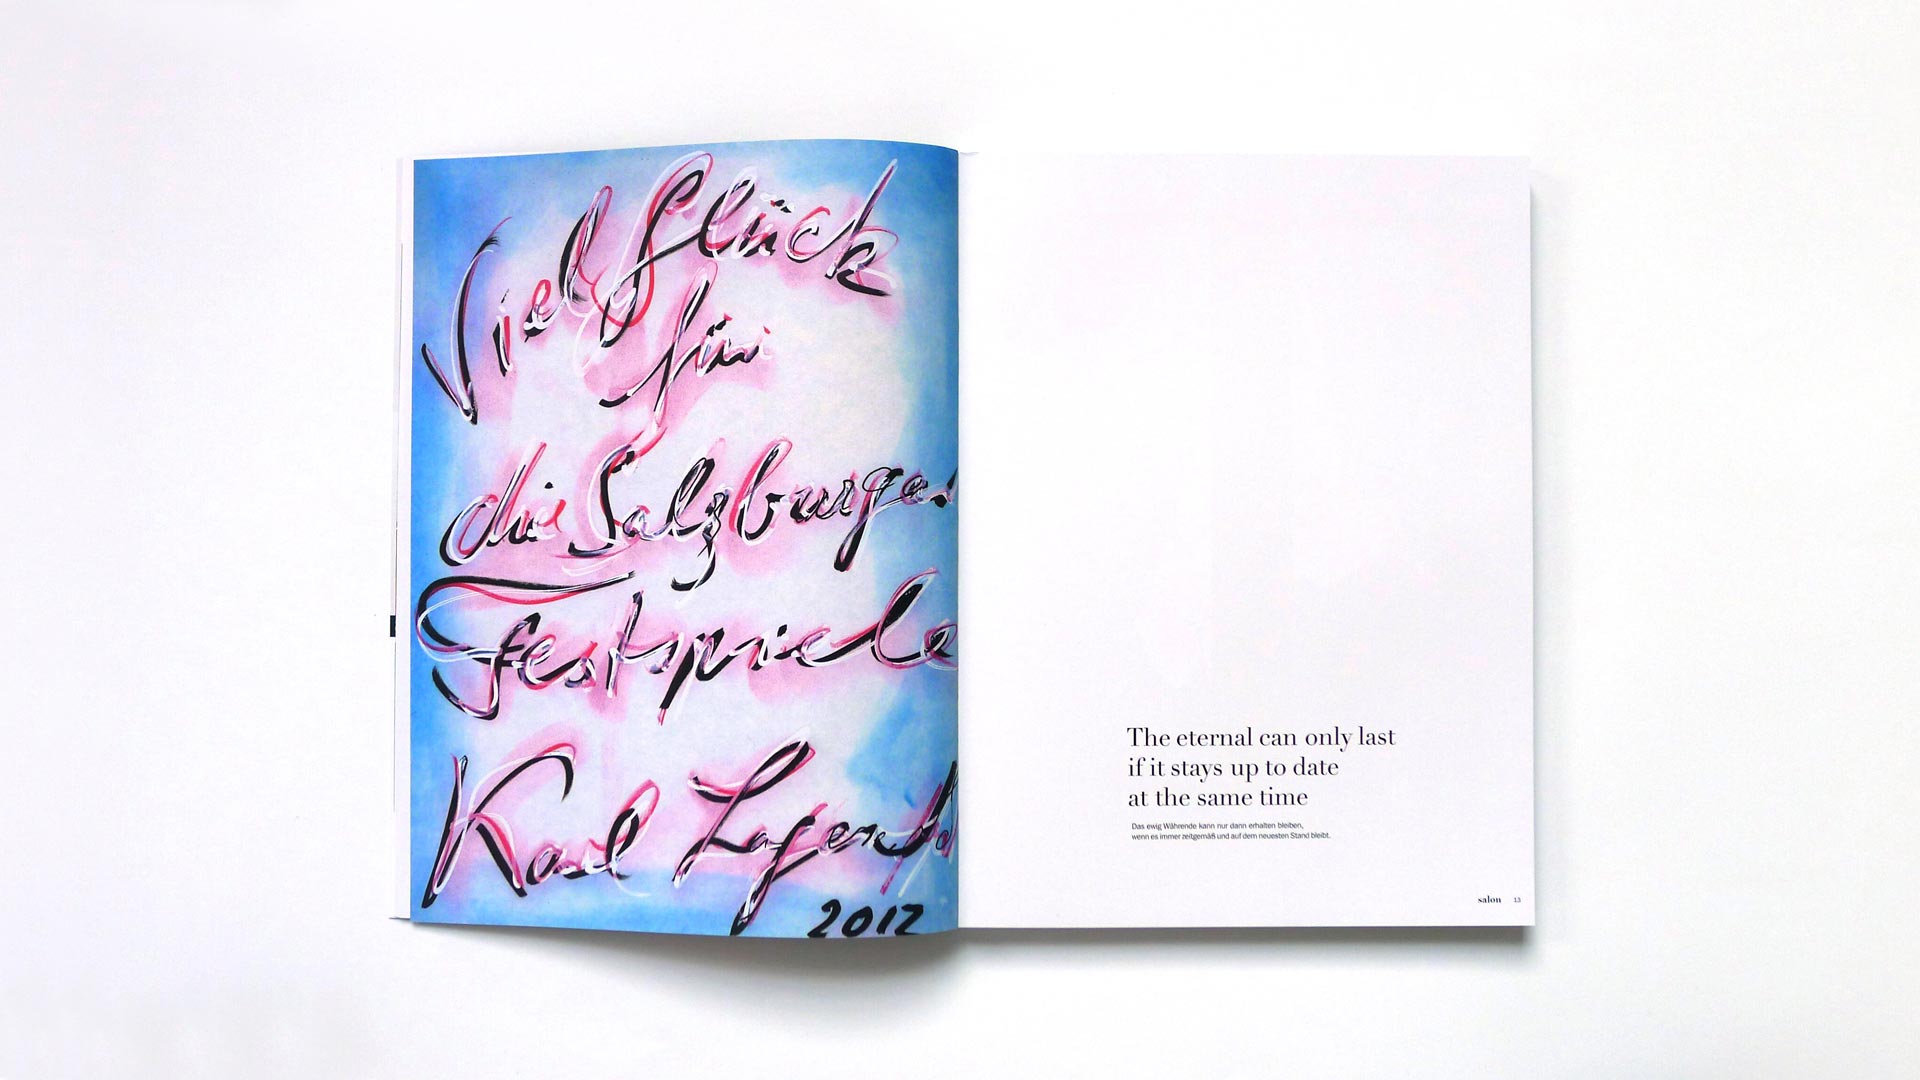 Viel Glück
für
die Salzburger
Festspiele
Karl Lagerfeld
2012
The eternal can only last
if it stays up to date
at the same time
Das ewig Währende kann nur dann erhalten bleiben,
wenn es immer zeitgemäß und auf dem neuesten Stand bleibt.
salon 13